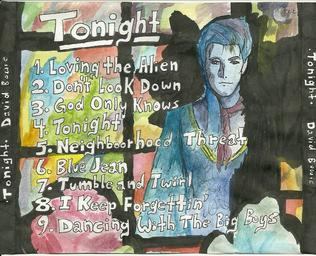 Tonight
1. Loving the Alien
2. Don't Look Down
3. God Only Knows
4. Tonight
5. Neighbourhood Threat
6. Blue Jean
7. Tumble and Twirl
8. I Keep Forgettin'
9. Dancing With The Big Boys
Tonight. David Bowie
Tonight. David Bowie